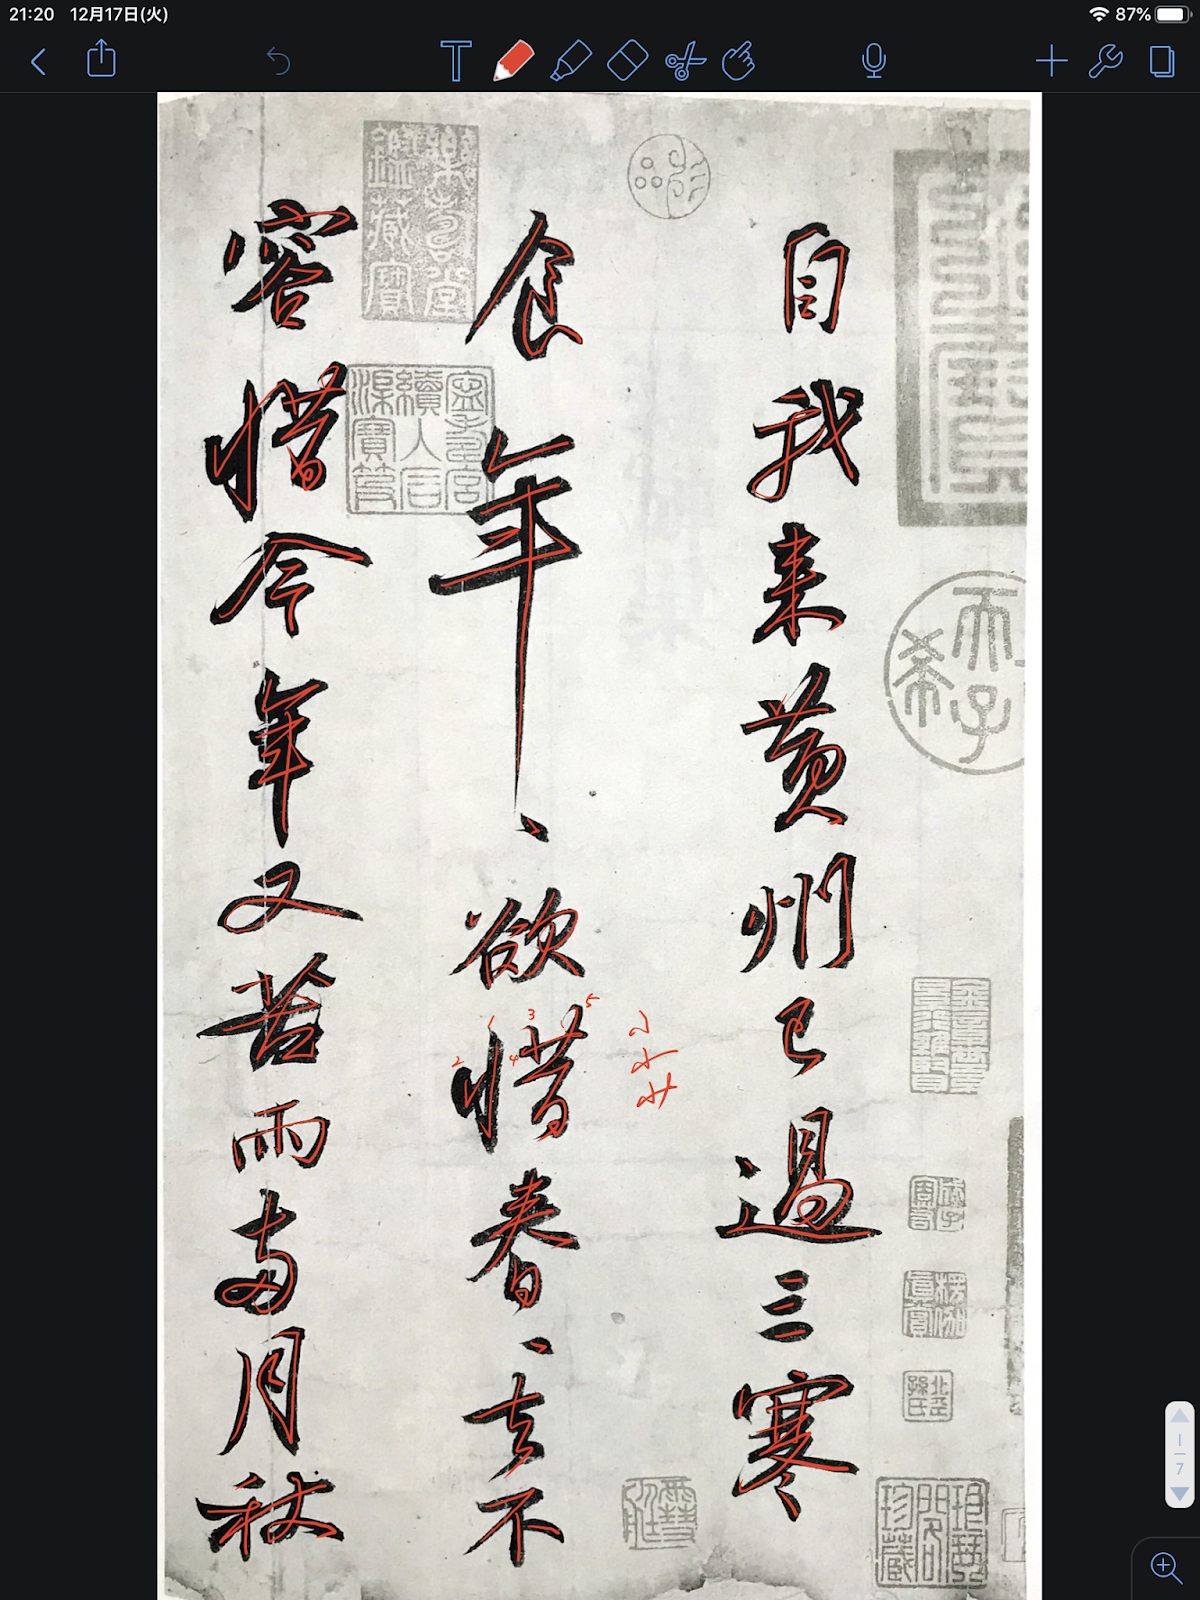 21:20 12月17日(火)
87%
自我来黄州已過三寒
食年、欲惜春、去不
容惜今年又苦雨兩月秋
天子
希
1
2
3
4
5
1
7